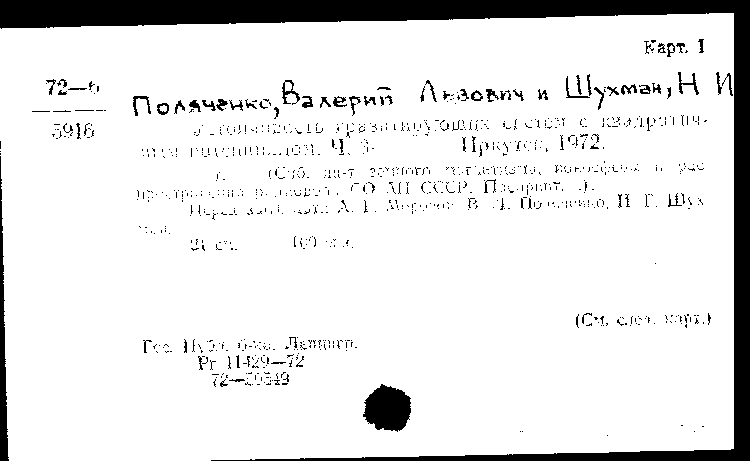 Карт. 1
72—6
5916
Поляченко, Валерий Львович и Шухман, Н И
Устойчивость гравитирующих систем с квадратич-
ным потенциалом. Ч. 3 Иркутск, 1972.
(Сиб. ин-т земного магнетизма, ионосферы и рас-
пространения радиоволн. СО АН СССР. Препринт.
Перед загл. авт.: А. Г. Морозов, В. Л. Поляченко, И. Г. Шух-
ман.
21 см. 100 экз.
(См. след. карт.)
Гос. Публ. б-ка. Ленингр.
Рг 11429—72
72—50549